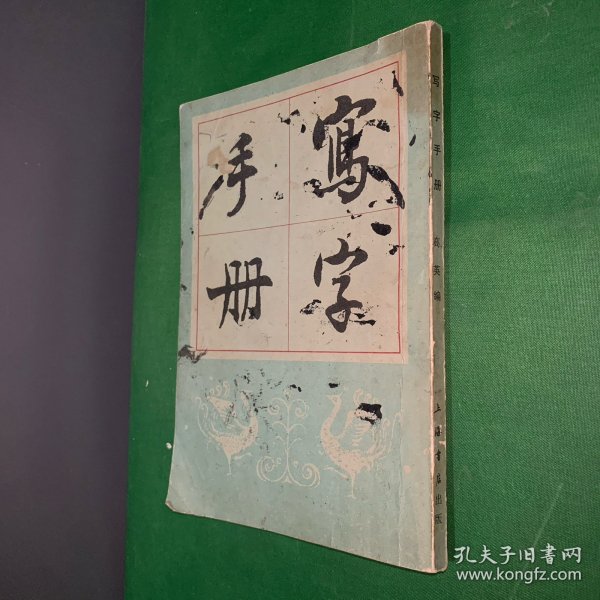 寫字
手册
写字手册 高英编 上海书店出版
孔夫子旧书网
www.kongfz.com